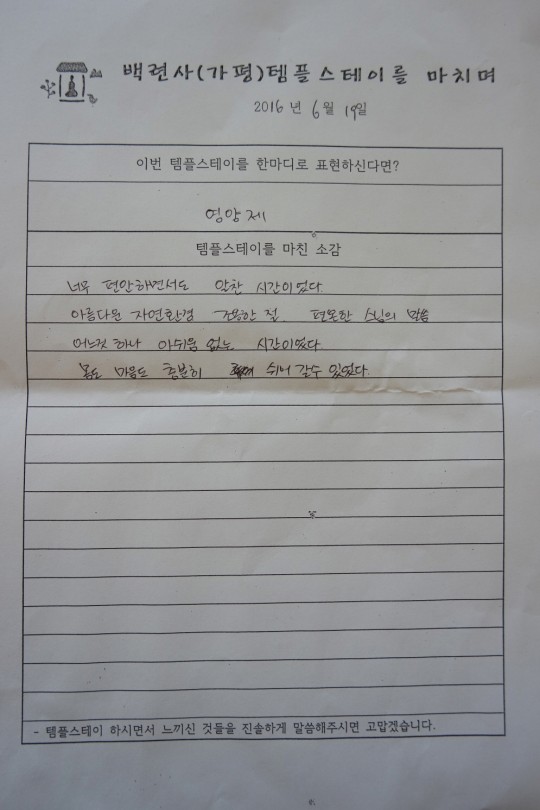 백련사(가평)템플스테이를 마치며
2016년 6월 19일
이번 템플스테이를 한마디로 표현하신다면?
영양제
템플스테이를 마친 소감
너무 편안하면서도 알찬 시간이었다
아름다운 자연환경 조용한 절 편온한 스님의 말씀
어느것 하나 아쉬움 없는 시간이었다
몸도 마음도 충분히 쉬어 갈수 있었다.
- 템플스테이 하시면서 느끼신 것들을 진솔하게 말씀해주시면 고맙겠습니다.